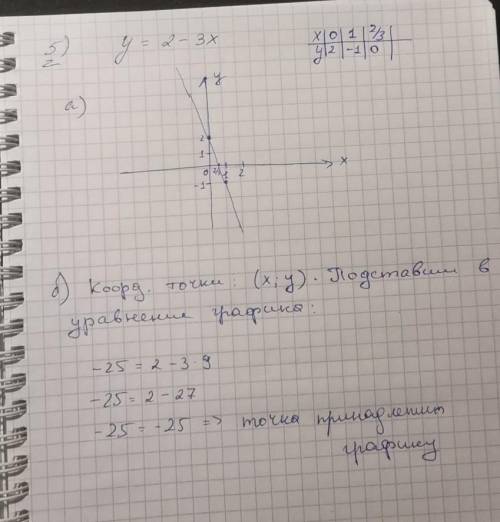 5) y = 2 - 3x
2
x | 0 | 1 | 2/3
y | 2 | -1 | 0
а)
y
2
1
0 2/3 1 2 x
-1
б) Коорд. точки: (x; y). Подставим в
уравнение графика:
-25 = 2 - 3·9
-25 = 2 - 27
-25 = -25 => точка принадлежит
графику